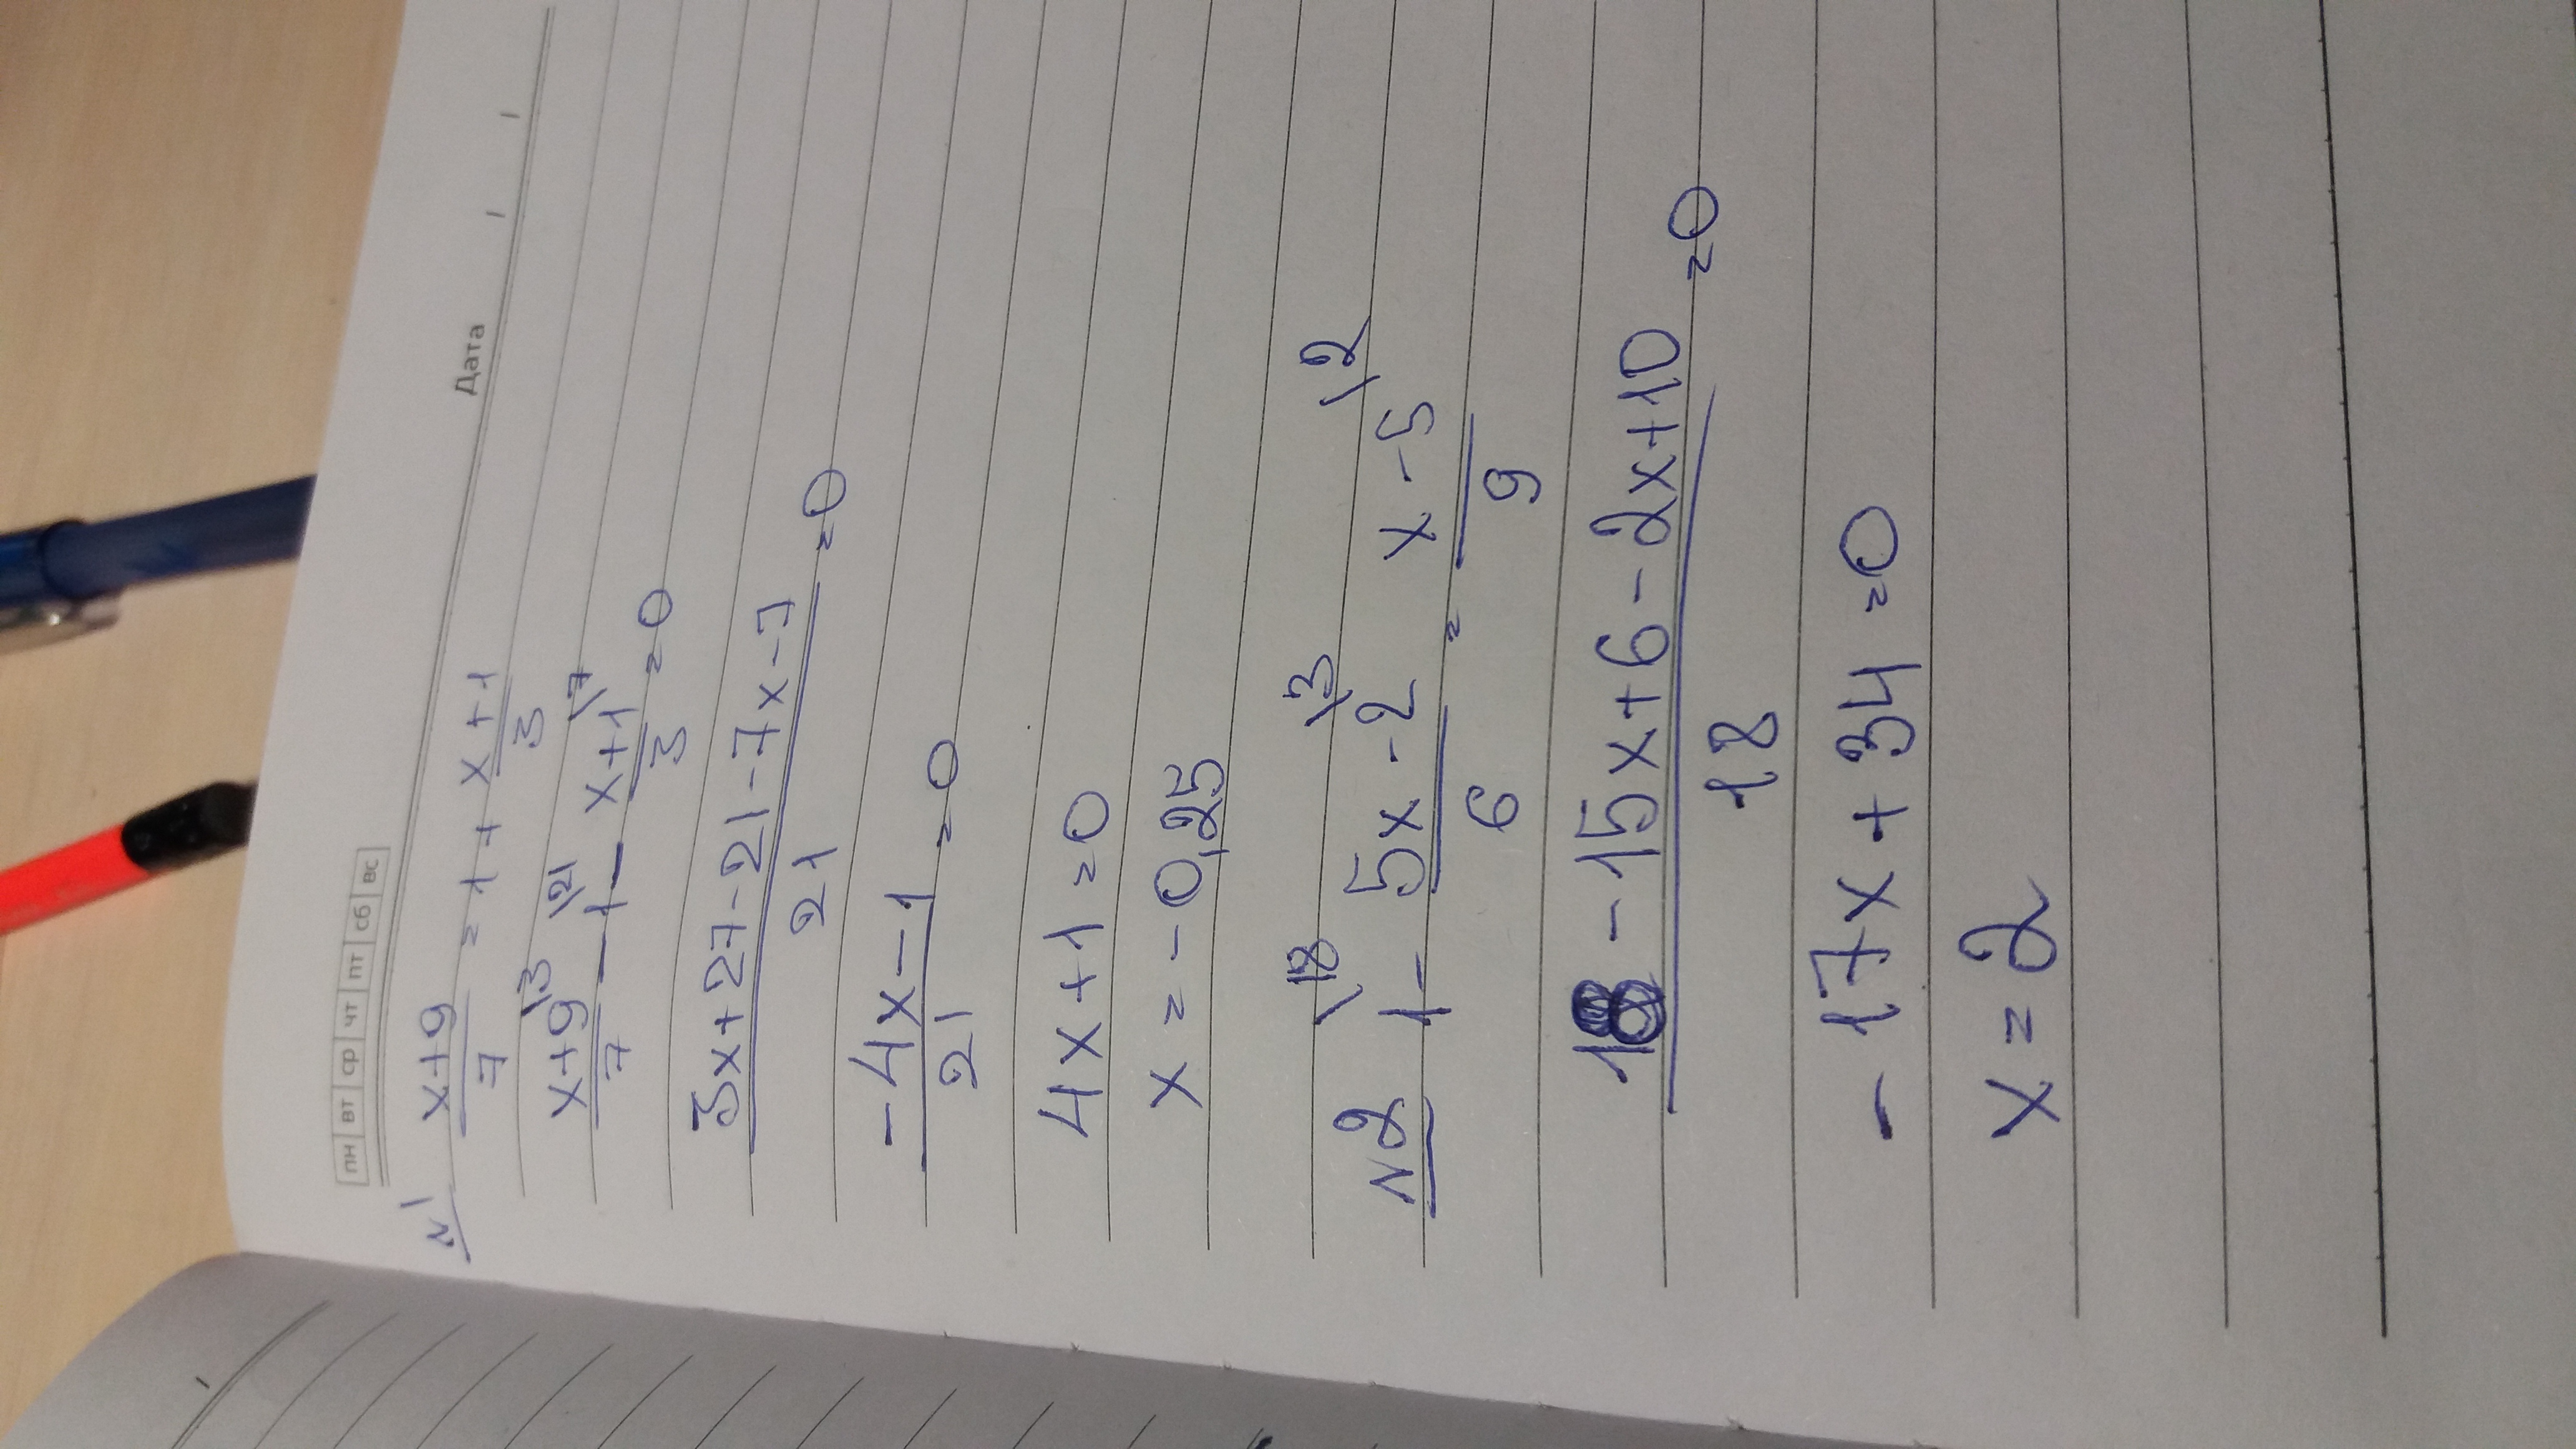 Дата / /
пн вт ср чт пт сб вс
N1 x+9/7 = 1 + x+1/3
x+9/7 \3 - 1 \21 - x+1/3 \7 = 0
3x+27-21-7x-7/21 = 0
-4x-1/21 = 0
4x+1=0
x = -0,25
N2 1 \18 - 5x-2/6 \3 = x-5/9 \2
18-15x+6-2x+10/18 = 0
-17x+34=0
x=2